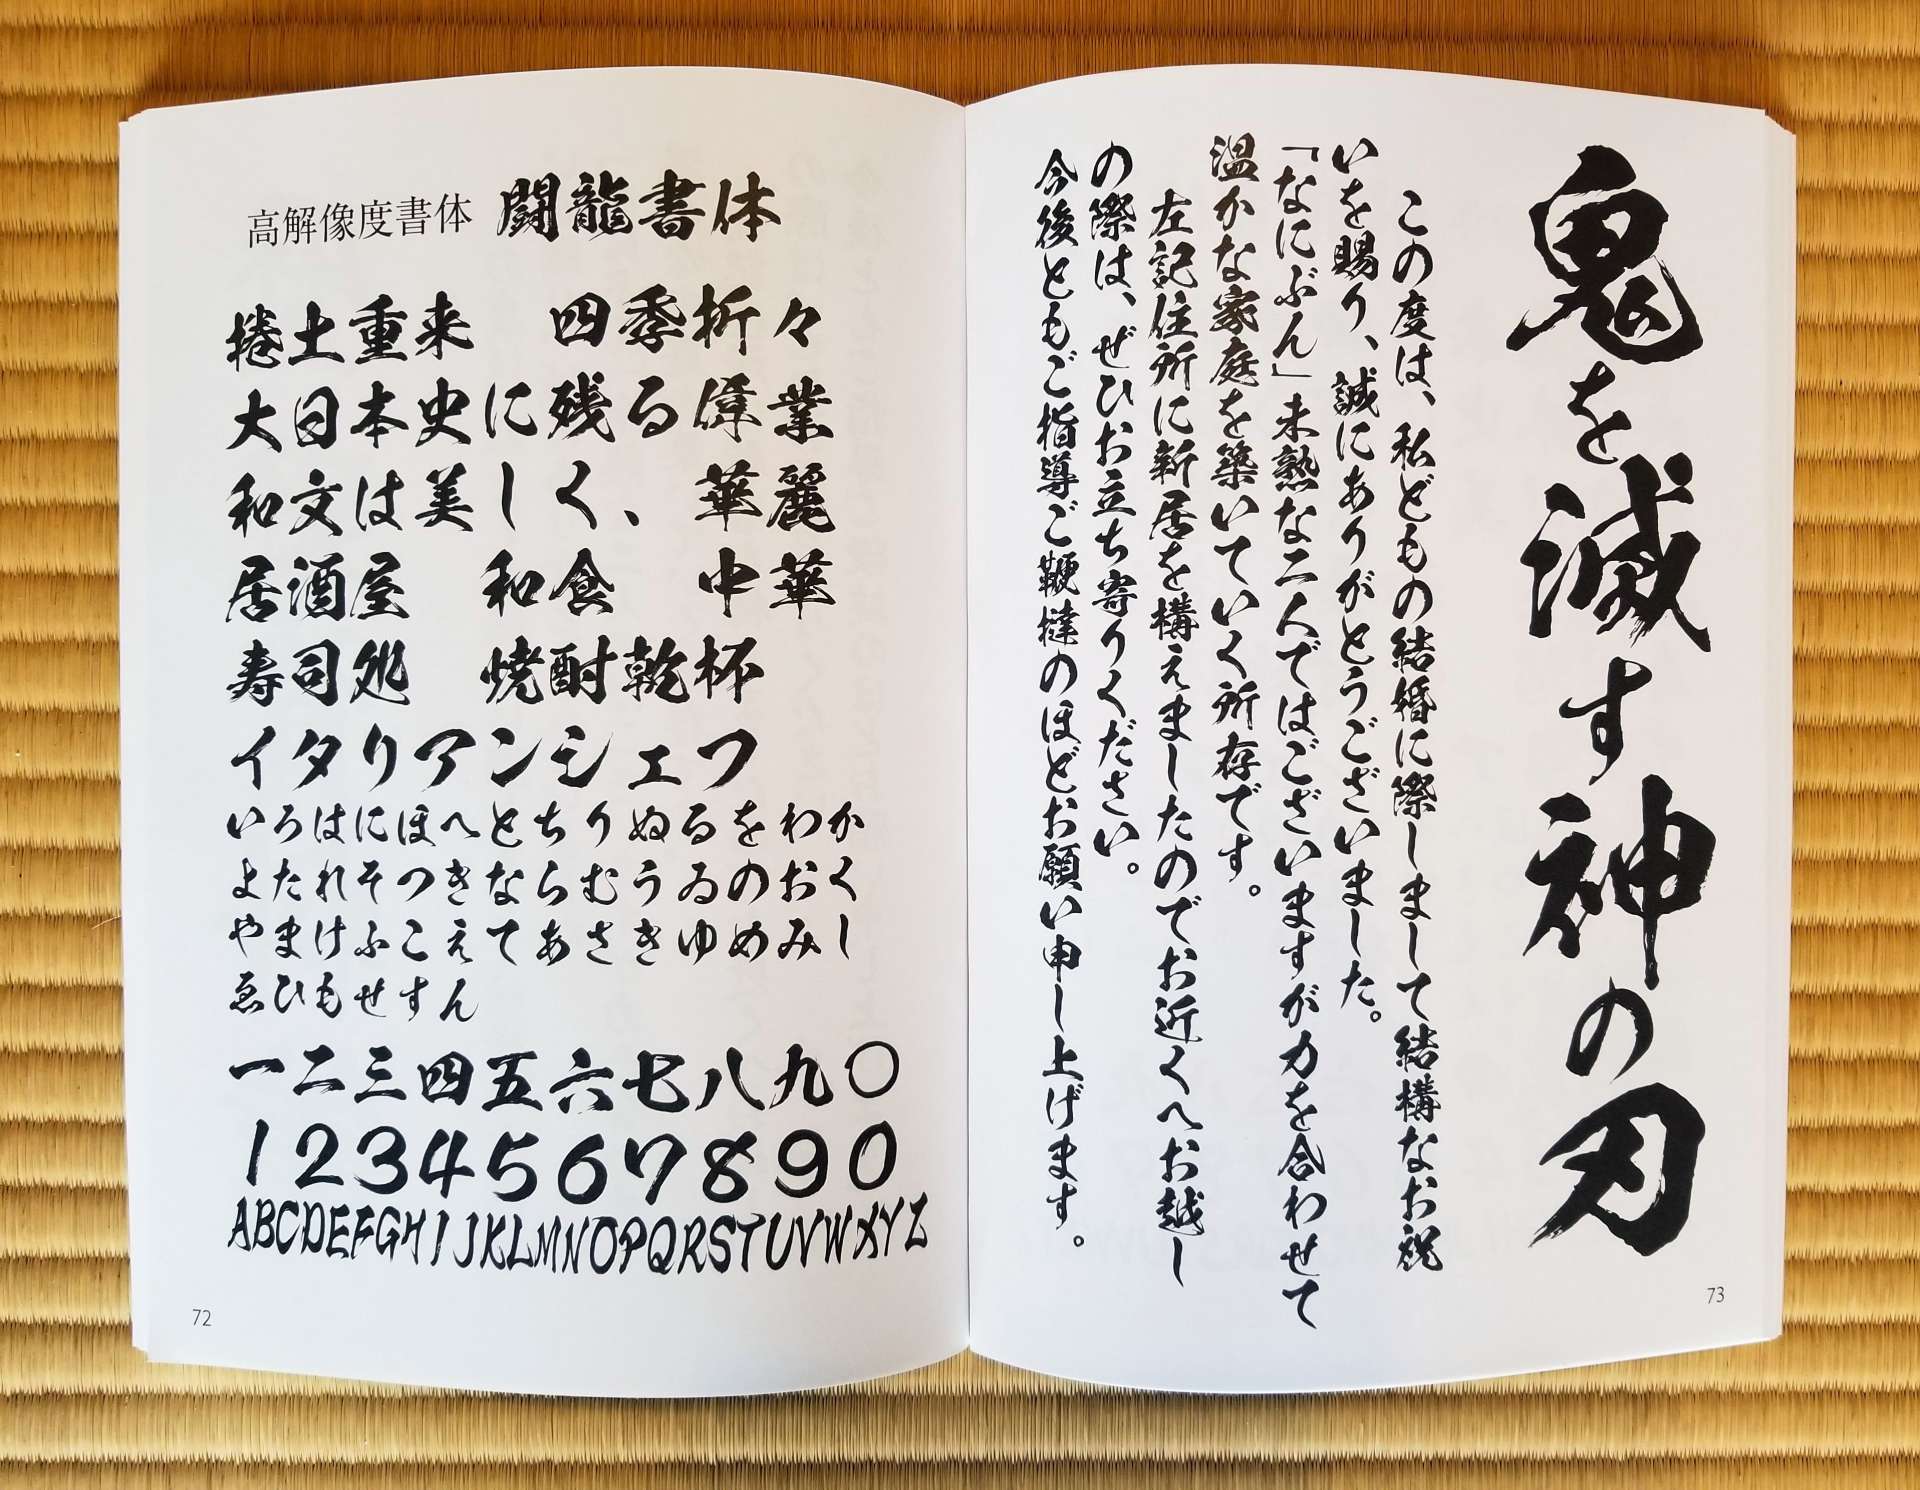 高解像度書体 闘龍書体
捲土重来 四季折々
大日本史に残る偉業
和文は美しく、華麗
居酒屋 和食 中華
寿司処 焼酎乾杯
イタリアンシェフ
いろはにほへとちりぬるをわか
よたれそつきならむうゐのおく
やまけふこえてあさきゆめみし
ゑひもせすん
一二三四五六七八九〇
1234567890
ABCDEFGHIJKLMNOPQRSTUVWXYZ
72
鬼を滅す神の刃
この度は、私どもの結婚に際しまして結構なお祝
いを賜り、誠にありがとうございました。
「なにぶん」未熟な二人ではございますが力を合わせて
温かな家庭を築いていく所存です。
左記住所に新居を構えましたのでお近くへお越し
の際は、ぜひお立ち寄りください。
今後ともご指導ご鞭撻のほどお願い申し上げます。
73